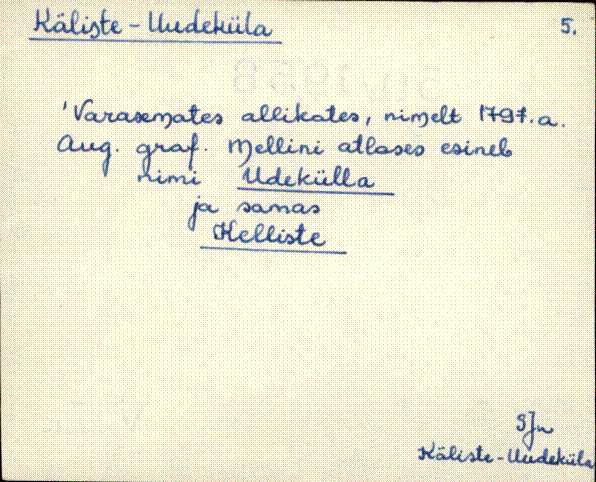 Käliste-Uudeküla 5.
'Varasemates allikates, nimelt 1797.a.
Aug. graf. Mellini atlases esineb
nimi Udekülla
ja samas
Kelliste
SJn
Käliste-Uudeküla